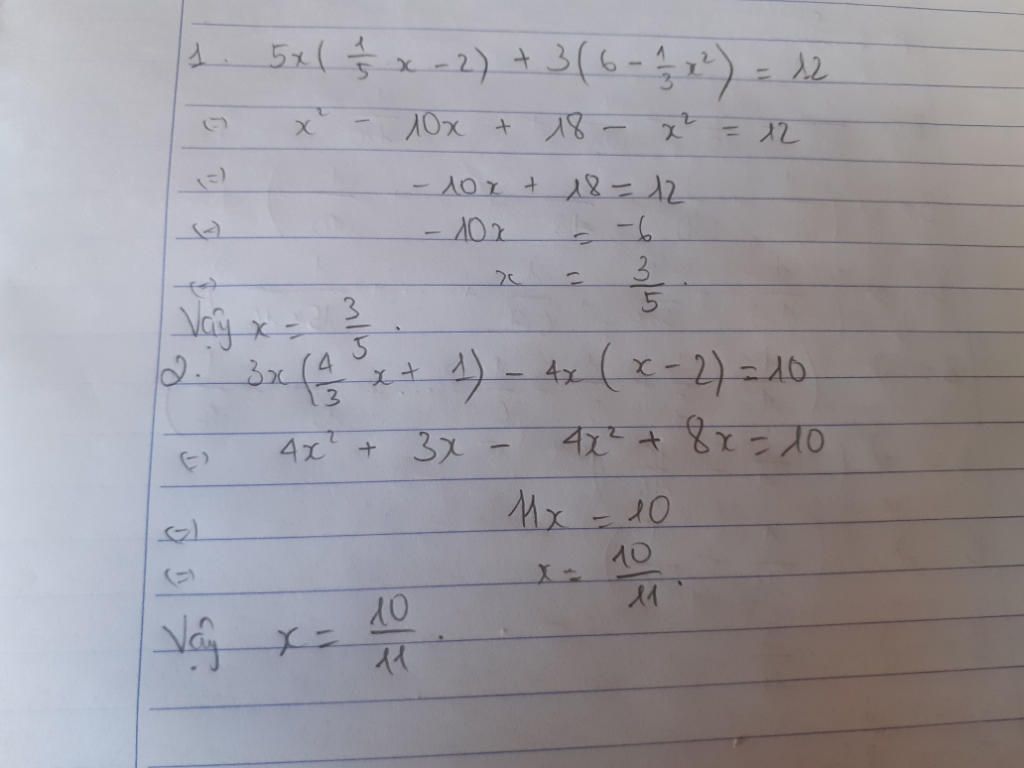 1. 5x(1/5 x - 2) + 3(6 - 1/3 x²) = 12
(=) x² - 10x + 18 - x² = 12
(=) -10x + 18 = 12
(=) -10x = -6
(=) x = 3/5.
Vậy x = 3/5.
2. 3x(4/3 x + 1) - 4x(x - 2) = 10
(=) 4x² + 3x - 4x² + 8x = 10
(=) 11x = 10
(=) x = 10/11.
Vậy x = 10/11.